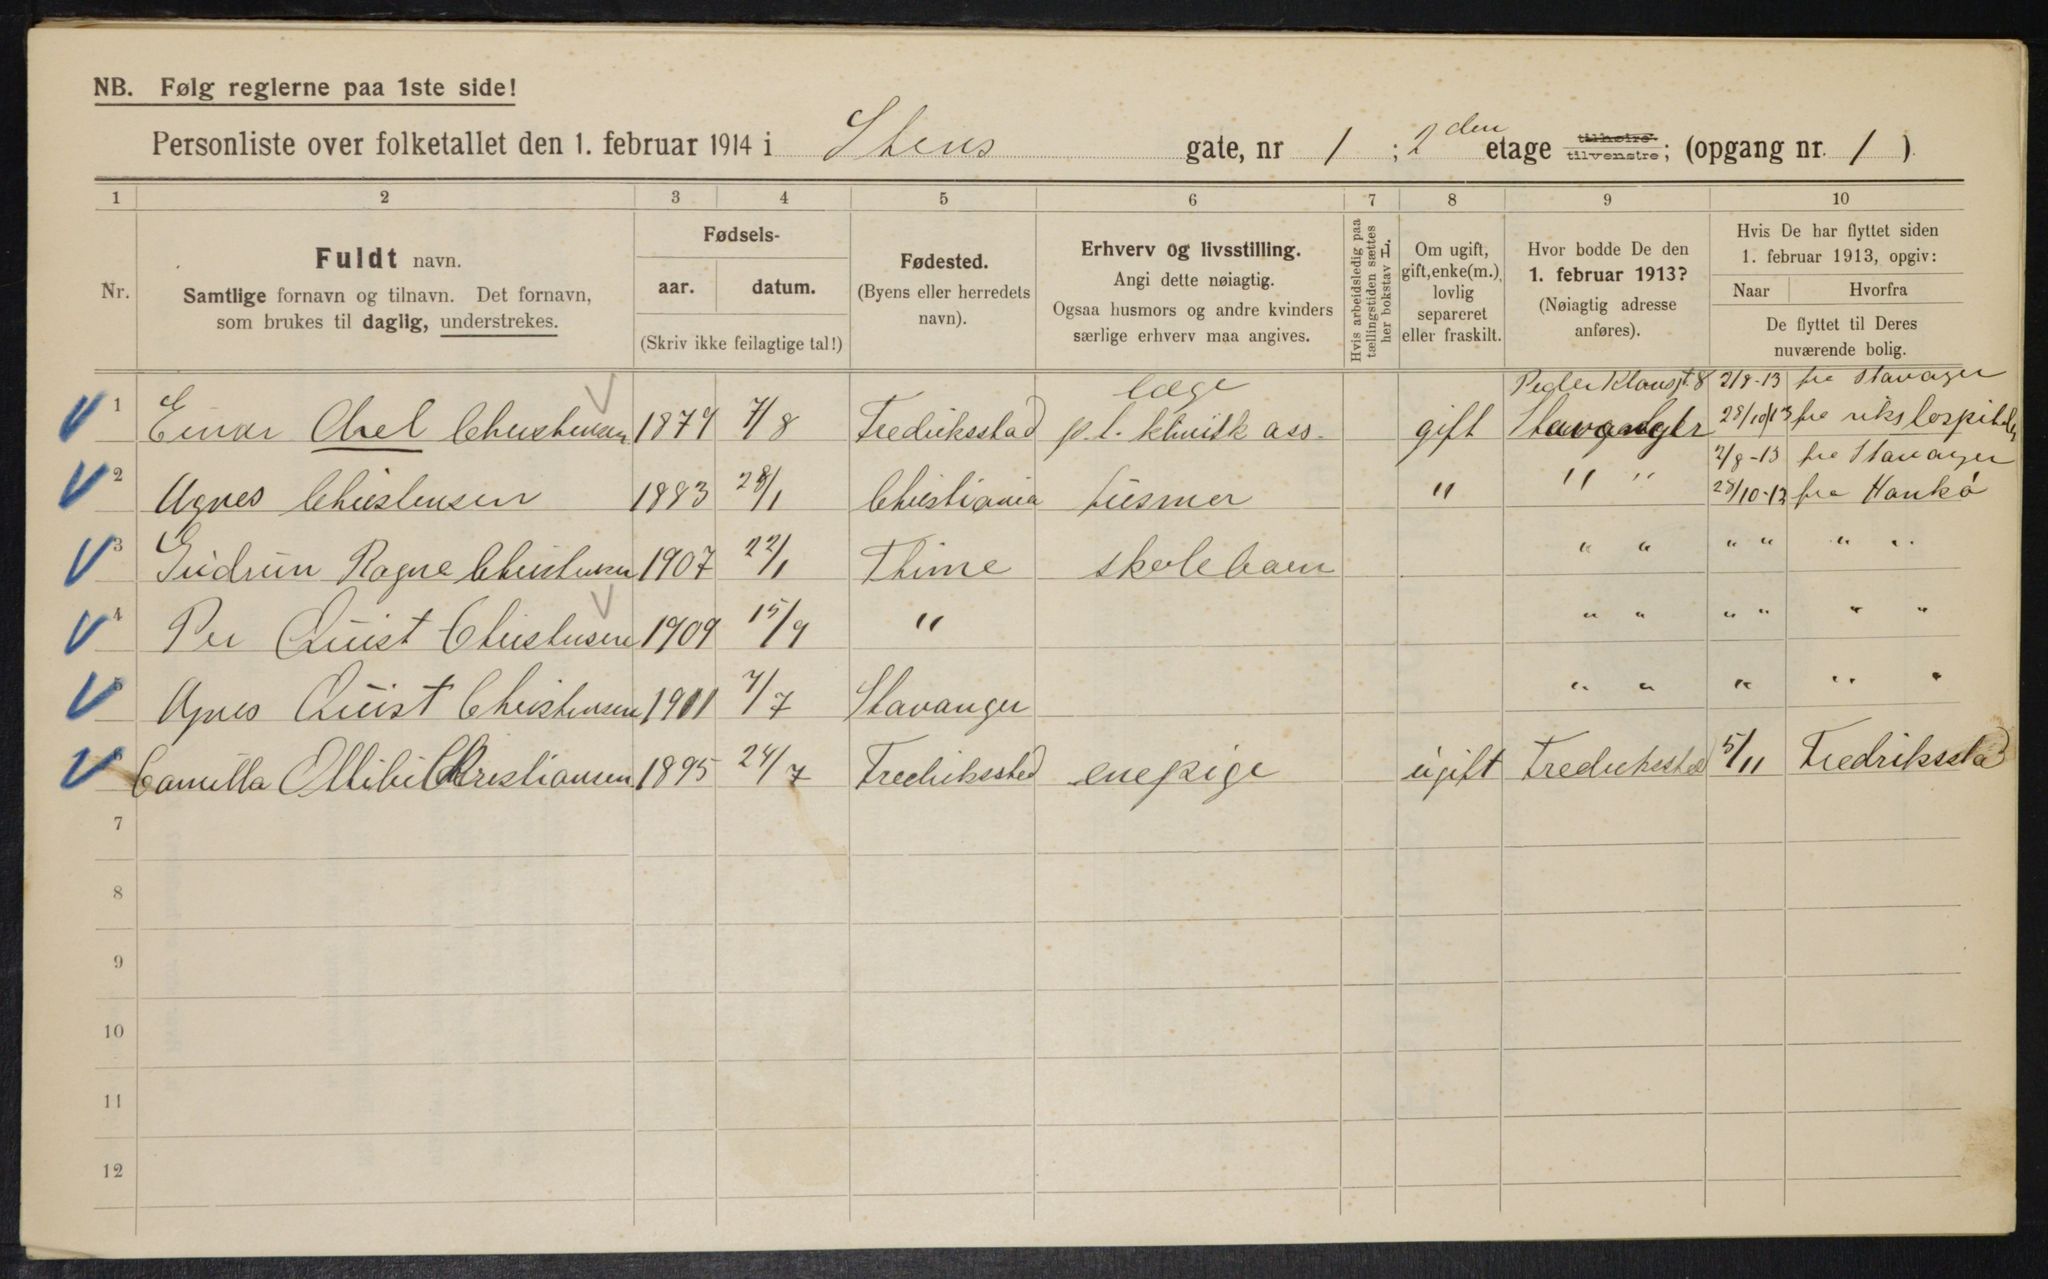 NB. Følg reglerne paa 1ste side!
Personliste over folketallet den 1. februar 1914 i Stens gate, nr 1 ; 2den etage tilhøire tilvenstre; (opgang nr. 1 ).
1 2 3 4 5 6 7 8 9 10
Nr.
Fuldt navn.
Samtlige fornavn og tilnavn. Det fornavn,
som brukes til daglig, understrekes.
Fødsels-
aar. datum.
(Skriv ikke feilagtige tal!)
Fødested.
(Byens eller herredets
navn).
Erhverv og livsstilling.
Angi dette nøiagtig.
Ogsaa husmors og andre kvinders
særlige erhverv maa angives.
Hvis arbeidsledig paa
tællingstiden sættes
her bokstav L.
Om ugift,
gift, enke(m.),
lovlig
separeret
eller fraskilt.
Hvor bodde De den
1. februar 1913?
(Nøiagtig adresse
anføres).
Hvis De har flyttet siden
1. februar 1913, opgiv:
Naar Hvorfra
De flyttet til Deres
nuværende bolig.
læge Peder Klausgt. 8 2/8-13 fra Stavager
1 Einar Axel Christensen 1874 7/8 Fredriksstad p.t. klinisk ass. gift Stavanger 28/10/13 fra rikshospitalet
2/8-13 fra Stavager
2 Agnes Christensen 1883 28/1 Christiania husmor " " " 28/10-13 fra Hankø
3 Gudrun Ragne Christensen 1907 22/1 Thime skolebarn " " " " " "
4 Per Quist Christensen 1909 15/9 " " " " " " "
5 Agnes Quist Christensen 1911 7/7 Stavanger " " " " "
6 Camilla Christiansen 1895 24/7 Fredriksstad enepige ugift Fredriksstad 5/11 Fredriksstad
7
8
9
10
11
12